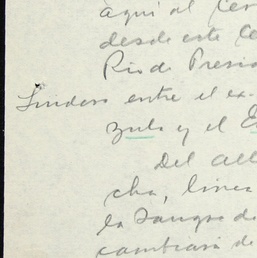 aqui al Cer
desde este Ce
Rio de Presi
Lindero entre el ex-
zulo y el E
Del all
cha, linea
la Sangre de
cambiará de